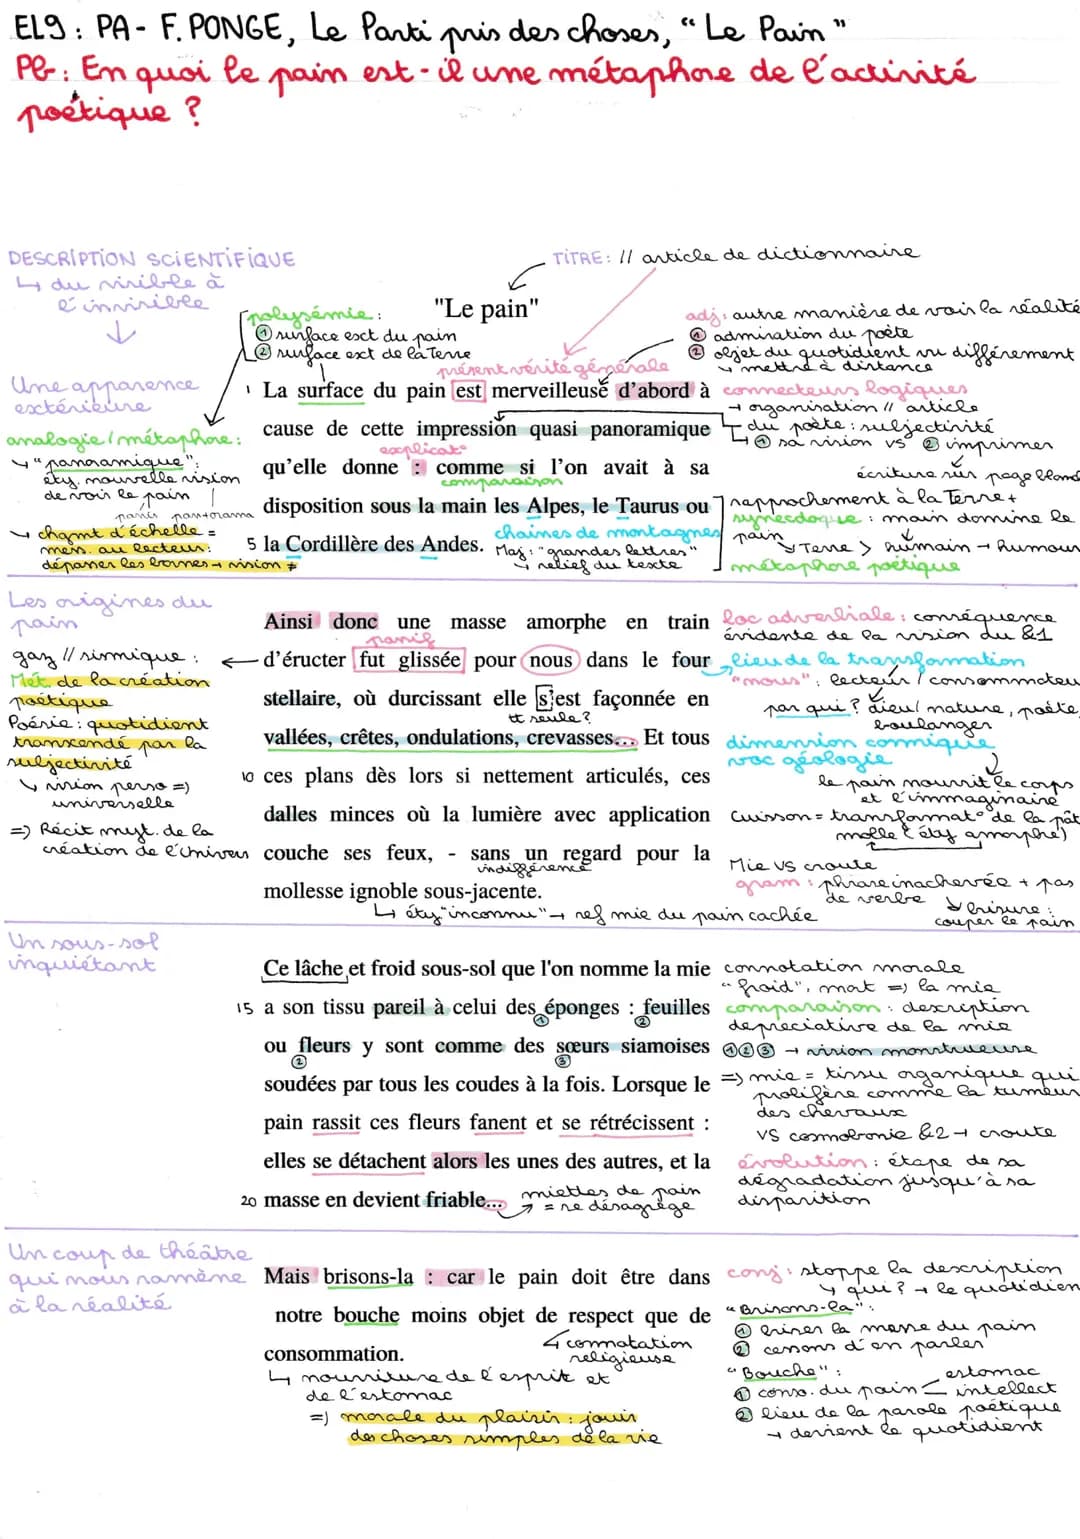 EL9 : PA - F. PONGE, Le Parti pris des choses, "Le Pain"
Pb : En quoi le pain est-il une métaphore de l'activité
poétique ?
DESCRIPTION SCIENTIFIQUE
↳ du visible à
l'invisible
↓
TITRE : // article de dictionnaire
"Le pain"
polysémie :
① surface ext du pain
② surface ext de la Terre
adj : autre manière de voir la réalité
① admiration du poète
② objet du quotidien vu différement
→ mettre à distance
présent vérité générale
Une apparence
extérieure
1 La surface du pain est merveilleuse d'abord à
connecteurs logiques
→ organisation // article
cause de cette impression quasi panoramique
du poète : subjectivité
↳ ① sa vision vs ② imprimer
écriture sur page blanc
analogie / métaphore :
↳ "panoramique" :
éty. nouvelle vision
de voir le pain
panis pan+orama
explicat°
qu'elle donne : comme si l'on avait à sa
comparaison
disposition sous la main les Alpes, le Taurus ou
rapprochement à la Terre +
synecdoque : main domine le
pain
↳ Terre > humain → humour
métaphore poétique
→ chgmt d'échelle =
mess. au lecteur :
dépasser les bornes → vision ≠
chaînes de montagnes
5 la Cordillère des Andes.
Maj : "grandes lettres"
↳ relief du texte
Les origines du
pain
Ainsi donc une masse amorphe en train
loc adverbiale : conséquence
évidente de la vision du §1
passif
gaz // sismique :
Mét de la création
poétique
Poésie : quotidient
transcendé par la
subjectivité
↳ vision perso =)
universelle
=) Récit myt. de la
création de l'Univers
d'éructer fut glissée pour nous dans le four
lieu de la transformation
"nous" : lecteur / consommateu
stellaire, où durcissant elle s'est façonnée en
par qui ? dieu / nature, poète,
boulanger
tt seule ?
vallées, crêtes, ondulations, crevasses... Et tous
dimension cosmique
voc géologie
10 ces plans dès lors si nettement articulés, ces
le pain nourrit le corps
et l'immaginaire
dalles minces où la lumière avec application
Cuisson = transformat° de la pât
molle (éty amorphe)
couche ses feux, - sans un regard pour la
indifférence
Mie vs croute
mollesse ignoble sous-jacente.
gram : phrase inachevée + pas
de verbe
↳ brisure :
couper le pain
↳ éty "inconnu" → ref mie du pain cachée
Un sous-sol
inquiétant
Ce lâche et froid sous-sol que l'on nomme la mie
connotation morale
"froid", mort =) la mie
15 a son tissu pareil à celui des éponges : feuilles
① ②
comparaison : description
depreciative de la mie
ou fleurs y sont comme des sœurs siamoises
② ③
①②③ → vision monstrueuse
soudées par tous les coudes à la fois. Lorsque le
=) mie = tissu organique qui
prolifère comme la tumeur
des chevaux
pain rassit ces fleurs fanent et se rétrécissent :
vs cosmobronie §2 → croute
elles se détachent alors les unes des autres, et la
évolution : étape de sa
dégradation jusqu'à sa
disparition
20 masse en devient friable...
miettes de pain
= se désagrège
Un coup de théâtre
qui nous ramène
à la réalité
Mais brisons-la : car le pain doit être dans
conj : stoppe la description
↳ qui ? → le quotidien
notre bouche moins objet de respect que de
"Brisons-la" :
① briser la masse du pain
② cessons d'en parler
connotation
religieuse
consommation.
↳ nourriture de l'esprit et
de l'estomac
=) morale du plaisir : jouir
des choses simples de la vie
"Bouche" :
① conso. du pain < estomac
intellect
② lieu de la parole poétique
→ devient le quotidient